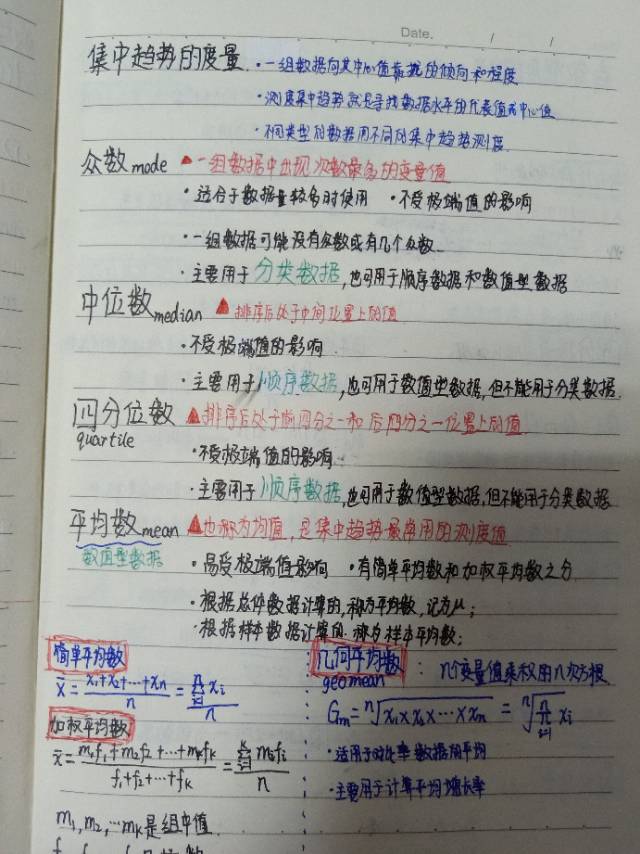 Date. / /
集中趋势的度量 ·一组数据向其中心值靠拢的倾向和程度
·测度集中趋势就是寻找数据水平的代表值或中心值
·不同类型的数据用不同的集中趋势测度
众数mode ▲一组数据中出现次数最多的变量值
·适合于数据量较多时使用 ·不受极端值的影响
·一组数据可能没有众数或有几个众数
·主要用于分类数据,也可用于顺序数据和数值型数据
中位数median ▲排序后处于中间位置上的值
·不受极端值的影响
·主要用于顺序数据,也可用于数值型数据,但不能用于分类数据.
四分位数 ▲排序后处于前四分之一和后四分之一位置上的值
quartile
·不受极端值的影响
·主要用于顺序数据,也可用于数值型数据,但不能用于分类数据
平均数mean ▲也称为均值,是集中趋势最常用的测度值
数值型数据 ·易受极端值影响 ·有简单平均数和加权平均数之分
·根据总体数据计算的,称为平均数,记为μ;
·根据样本数据计算的,称为样本平均数;
简单平均数
x̄ = (x₁+x₂+…+xₙ)/n = ∑ⁿᵢ₌₁ xᵢ/n
加权平均数
x̄ = (m₁f₁+m₂f₂+…+mₖfₖ)/(f₁+f₂+…+fₖ) = ∑ᵏᵢ₌₁ mᵢfᵢ/n
m₁,m₂,…mₖ是组中值
几何平均数 : n个变量值乘权的n次方根
geomean
Gₘ = ⁿ√(x₁×x₂×…×xₙ) = ⁿ√(∏ⁿᵢ₌₁ xᵢ)
·适用于对比率数据的平均
·主要用于计算平均增长率